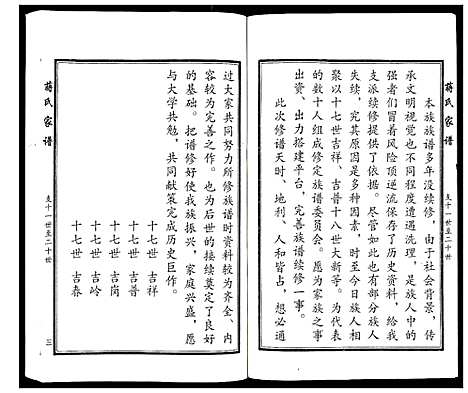 蒋氏家谱
支十一世至二十世
本族族谱多年没续修，由于社会背景，传
承文明视觉，也不同程度遭遇洗理，是族人中的
强者们冒着风险顶逆流保存了历史资料，给我
支派续修提供了依据。尽管如此也有部分族人
失续，究其原因是多种因素，时至今日族人相
聚以十七世吉祥、吉普十八世大新等。为代表
的数十人组成修定族谱委员会。愿为家族之事
出资、出力搭建平台，完善族谱续修一事。
此次修谱天时、地利、人和皆占，想必通
过大家共同努力所修族谱时资料较为齐全、内
容较为完善之作。也为后世的接续奠定了良好
的基础。把谱修好使我族振兴，家庭兴盛，愿
与大学共勉，共同献策完成历史巨作。
十七世 吉祥
十七世 吉普
十七世 吉岗
十七世 吉岭
十七世 吉春
蒋氏家谱
支十一世至二十世
三